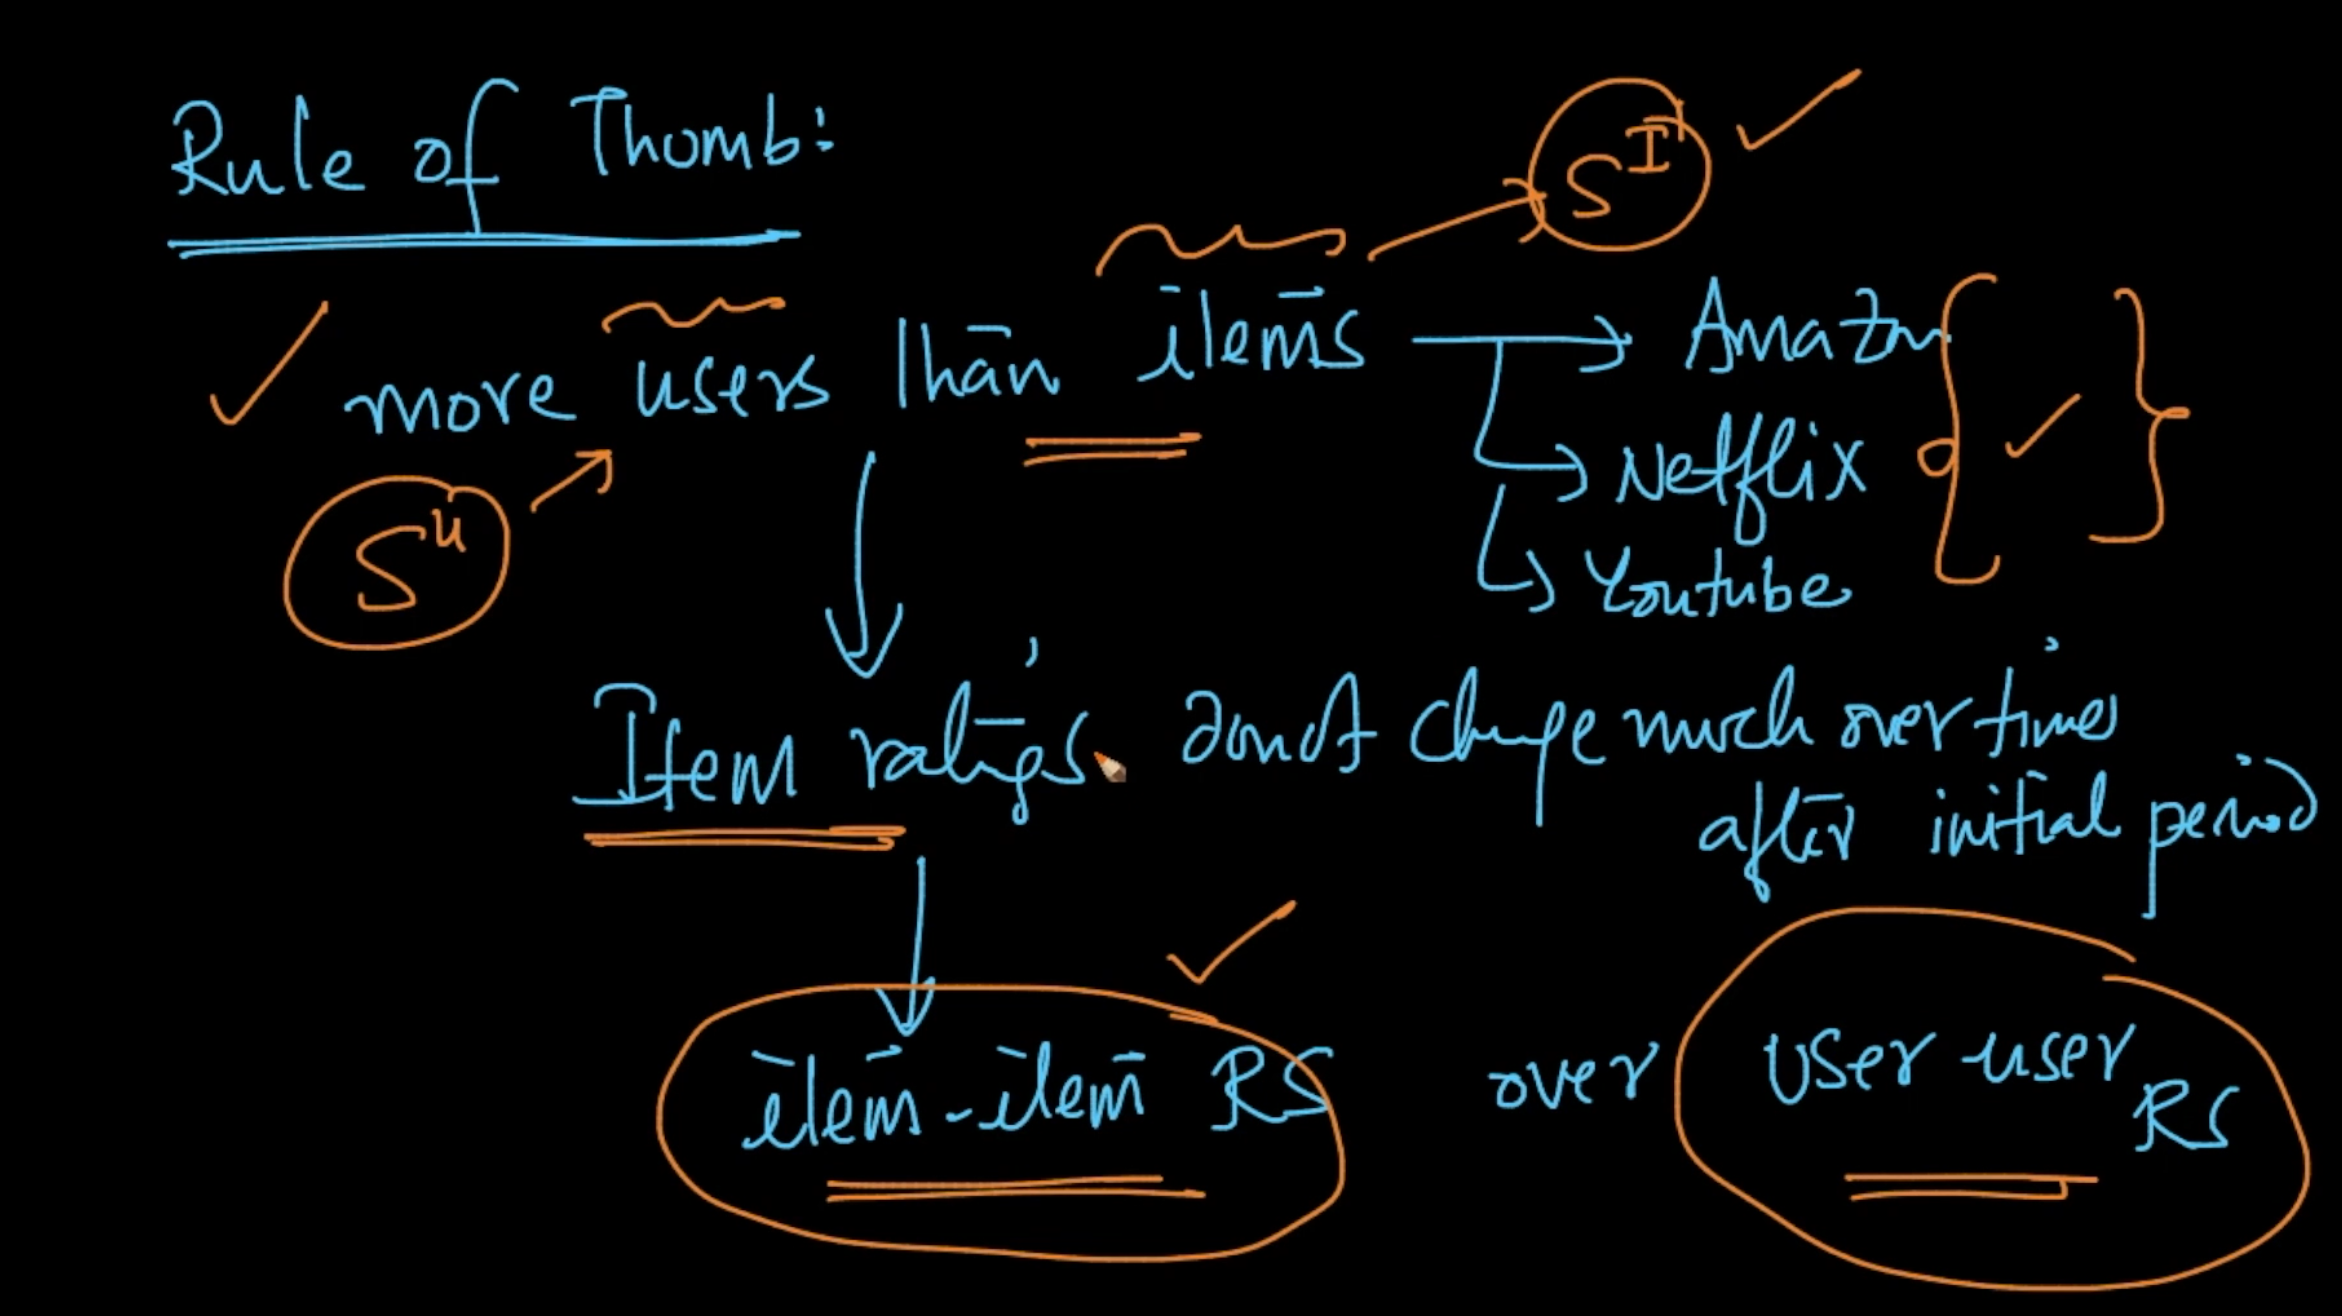 Rule of Thumb:
S^I
more users than items → Amazon
→ Netflix
→ Youtube
S^u
Item ratings don't change much over times
after initial period
item-item RS over user user RS